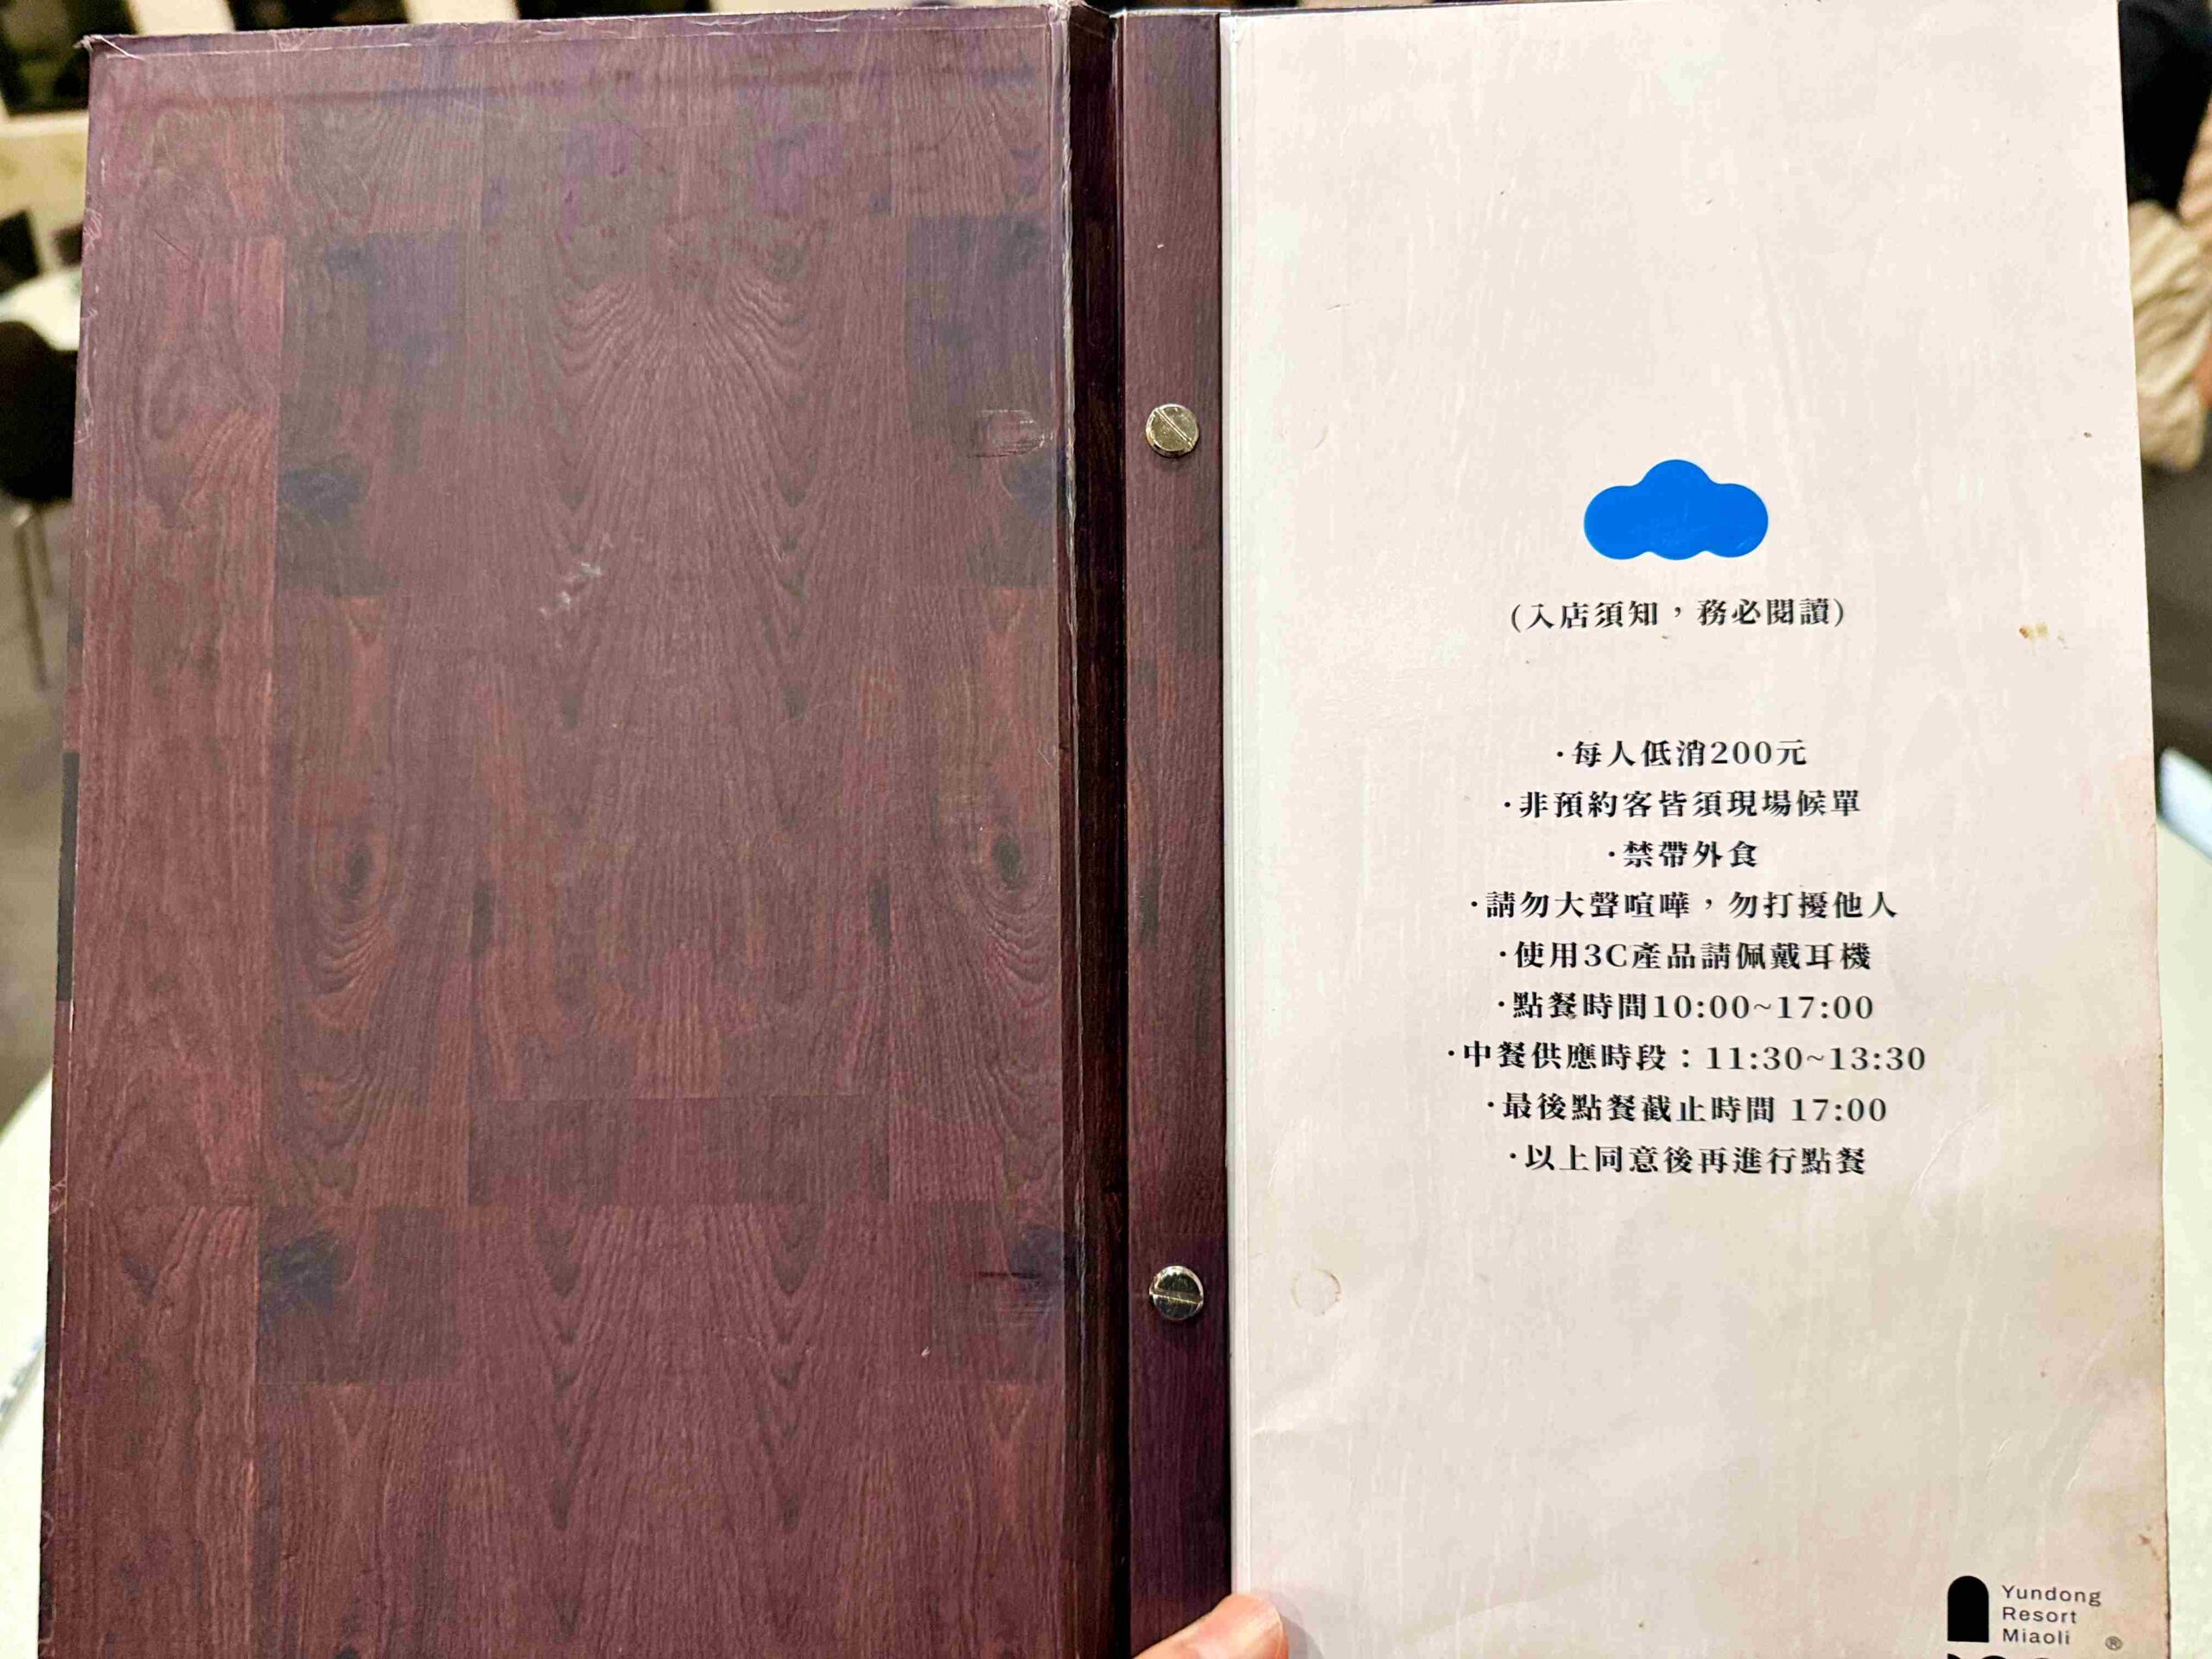 (入店須知，務必閱讀)
·每人低消200元
·非預約客皆須現場候單
·禁帶外食
·請勿大聲喧嘩，勿打擾他人
·使用3C產品請佩戴耳機
·點餐時間10:00~17:00
·中餐供應時段：11:30~13:30
·最後點餐截止時間 17:00
·以上同意後再進行點餐
Yundong
Resort
Miaoli
®